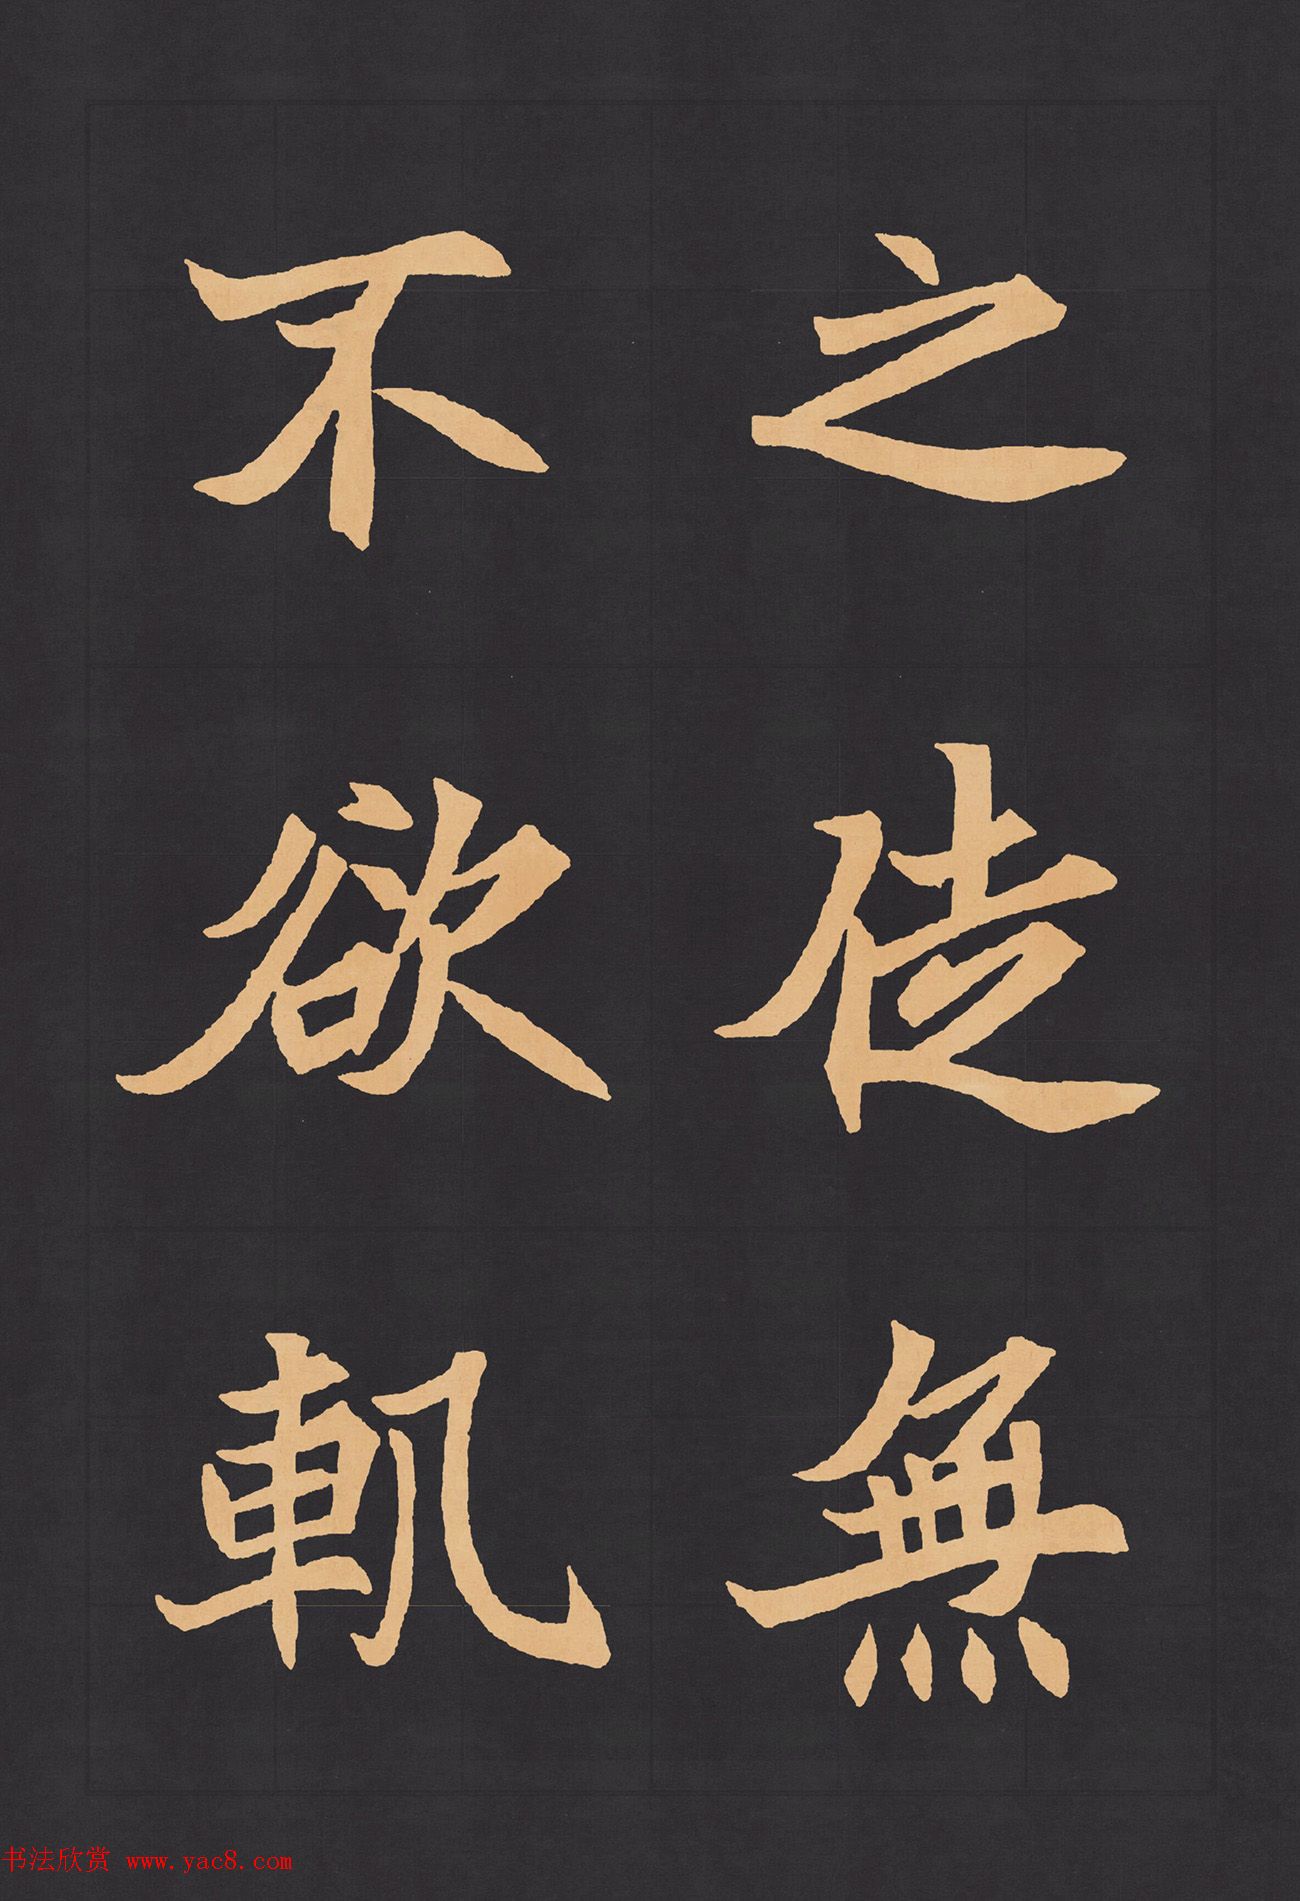 之徒無
不欲軌
书法欣赏 www.yac8.com